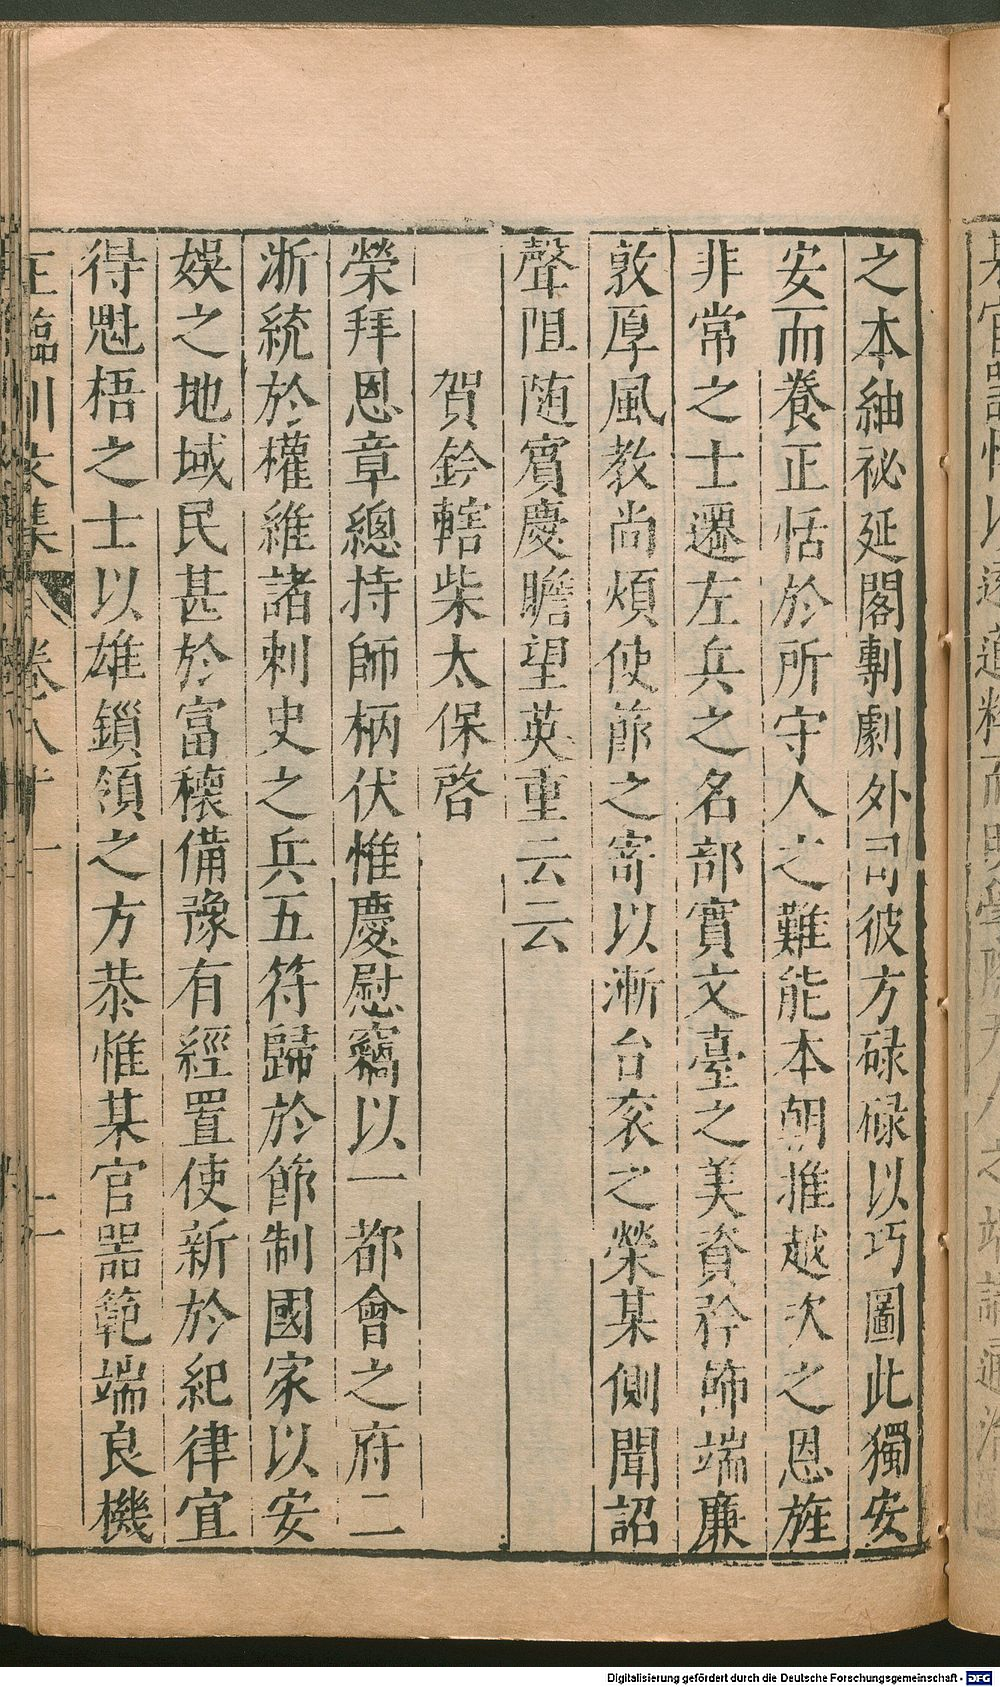 之本紬祕延閣剸劇外司彼方碌碌以巧圖此獨安
安而養正恬於所守人之難能本朝推越次之恩旌
非常之士遷左兵之名部實文臺之美資矜飾端廉
敦厚風教尚煩使節之寄以漸台衮之榮某側聞詔
聲阻随賓慶瞻望英重云云
賀鈐轄柴太保啓
榮拜恩章總持師柄伏惟慶慰竊以一都會之府二
浙統於權維諸刺史之兵五符歸於節制國家以安
娛之地域民甚於富穰備豫有經置使新於紀律宜
得魁梧之士以雄鎖領之方恭惟某官噐範端良機
王臨川文集 卷八十一 二
Digitalisierung gefördert durch die Deutsche Forschungsgemeinschaft - DFG